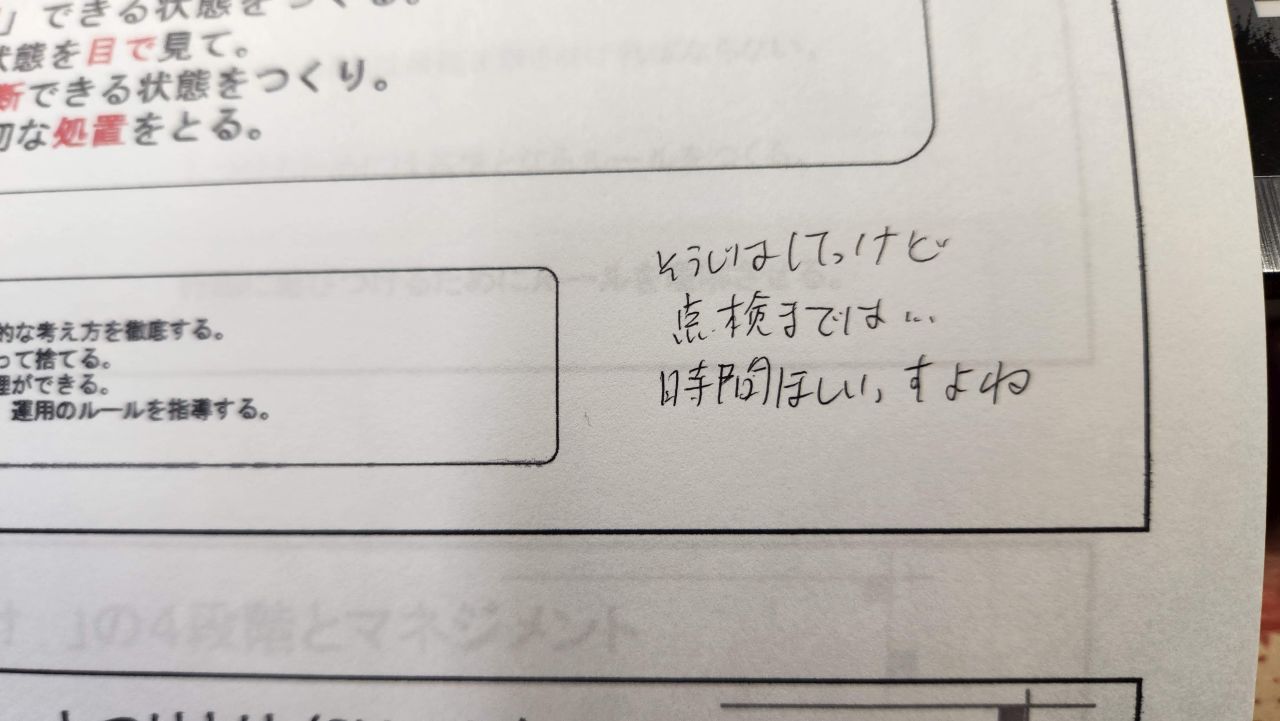 」できる状態をつくる。
状態を目で見て。
断できる状態をつくり。
切な処置をとる。
そうじはしてっけど
点検までは…
時間ほしいっすよね
的な考え方を徹底する。
って捨てる。
理ができる。
運用のルールを指導する。
」の4段階とマネジメント